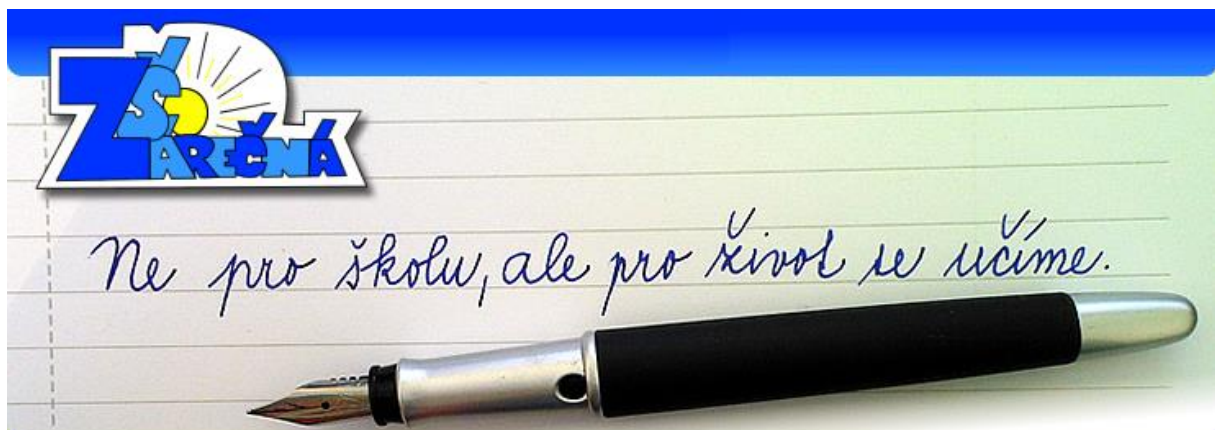 ZŠ
ÁREČNÁ
Ne pro školu, ale pro život se učíme.